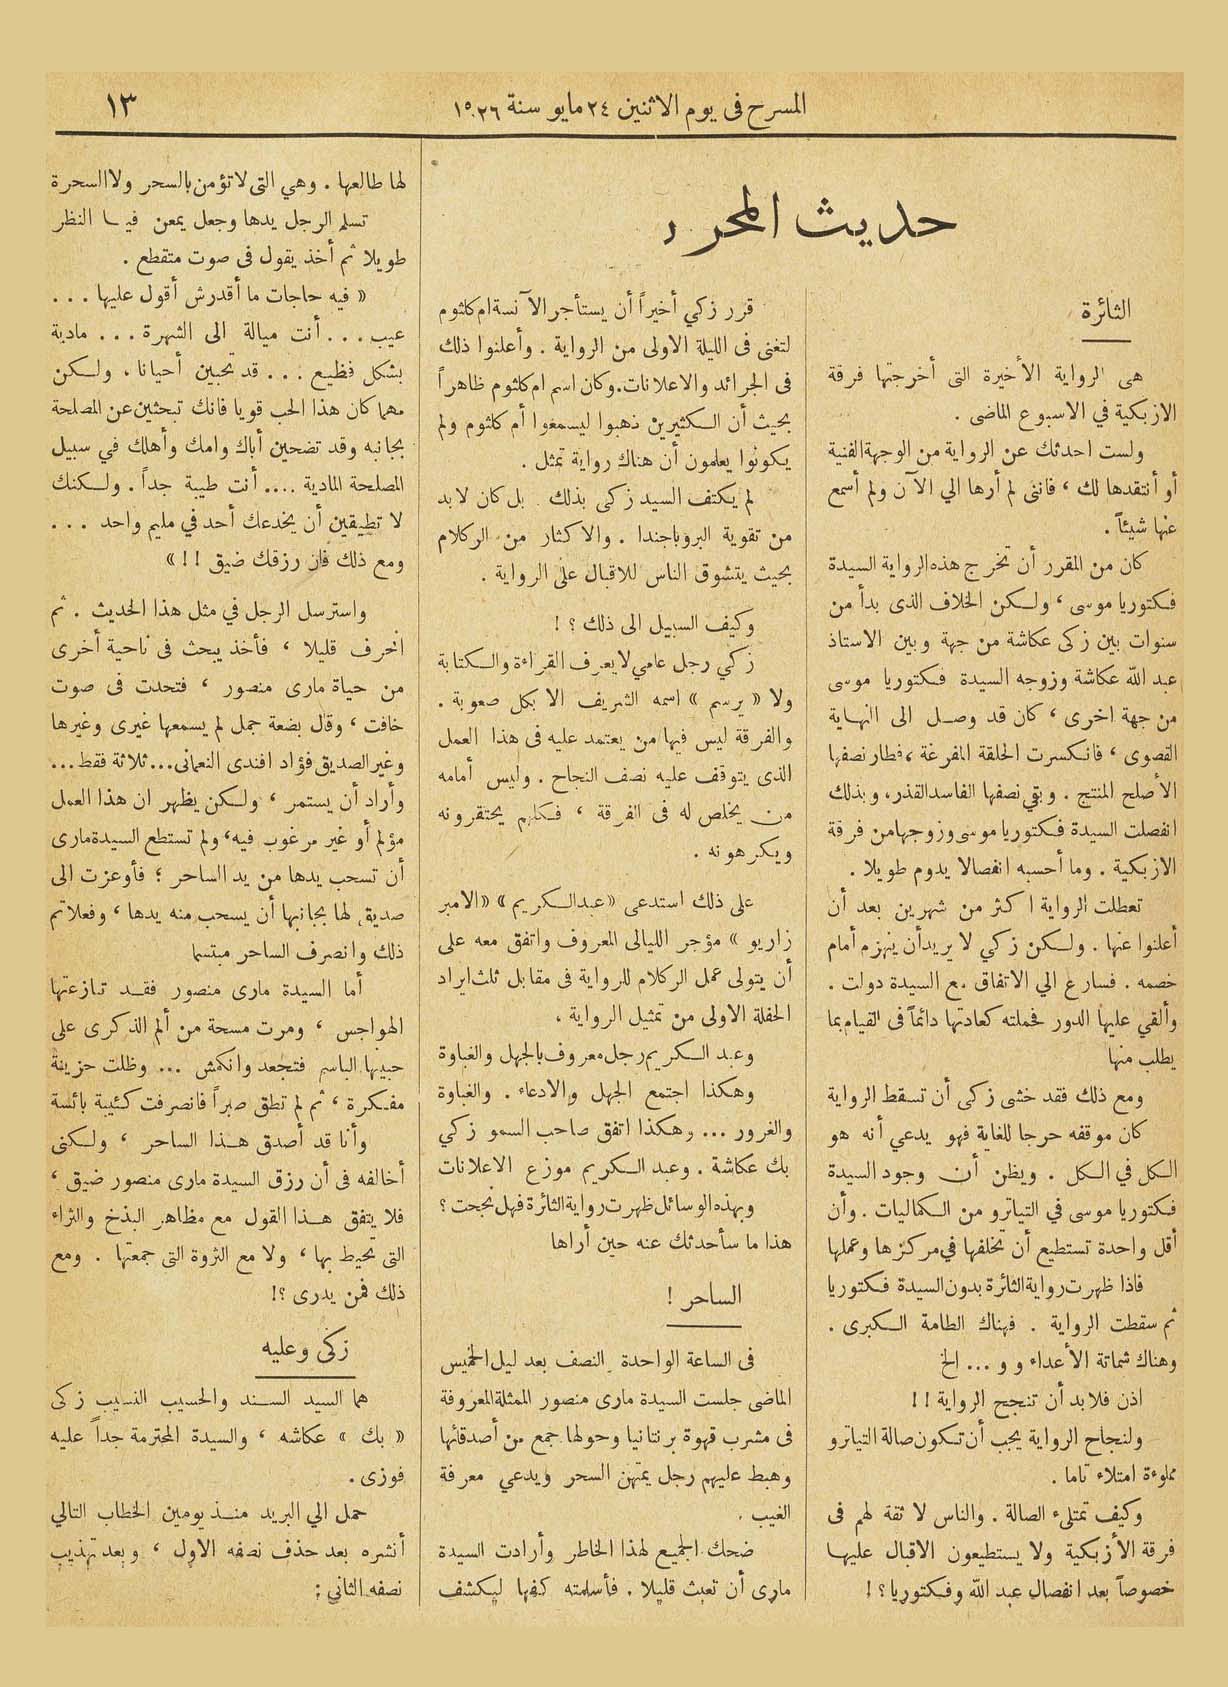 المسرح فى يوم الاثنين ٢٤ مايو سنة ١٩٢٦
١٣
حديث المحرر
الثائرة
هى الرواية الأخيرة التى أخرجتها فرقة
الازبكية في الاسبوع الماضى .
ولست احدثك عن الرواية من الوجهة الفنية
أو أنتقدها لك ، فاننى لم أرها الي الآن ولم أسمع
عنها شيئاً .
كان من المقرر أن تخرج هذه الرواية السيدة
فكتوريا موسى ، ولكن الخلاف الذى بدأ من
سنوات بين زكى عكاشة من جهة وبين الاستاذ
عبد الله عكاشة وزوجه السيدة فكتوريا موسى
من جهة اخرى ، كان قد وصل الى النهاية
القصوى ، فانكسرت الحلقة المفرغة ، فطار نصفها
الأصلح المنتج . وبقي نصفها الفاسد القذر ، وبذلك
انفصلت السيدة فكتوريا موسى وزوجها من فرقة
الازبكية . وما أحسبه انفصالا يدوم طويلا .
تعطلت الرواية اكثر من شهرين بعد أن
أعلنوا عنها . ولكن زكي لا يريد أن ينهزم أمام
خصمه . فسارع الي الاتفاق مع السيدة دولت .
وألقي عليها الدور فحملته كعادتها دائماً فى القيام بما
يطلب منها
ومع ذلك فقد خشى زكى أن تسقط الرواية
كان موقفه حرجا للغاية فهو يدعي أنه هو
الكل في الكل . ويظن أن وجود السيدة
فكتوريا موسى في التياترو من الكماليات . وأن
أقل واحدة تستطيع أن تخلفها في مركزها وعملها
فاذا ظهرت رواية الثائرة بدون السيدة فكتوريا
ثم سقطت الرواية . فهناك الطامة الكبرى .
وهناك شماتة الأعداء و و ... الخ
اذن فلا بد أن تنجح الرواية !!
ولنجاح الرواية يجب أن تكون صالة التياترو
مملوءة امتلاء تاما .
وكيف تمتلىء الصالة . والناس لا ثقة لهم فى
فرقة الأزبكية ولا يستطيعون الاقبال عليها
خصوصاً بعد انفصال عبد الله وفكتوريا ؟ !
قرر زكي أخيراً أن يستأجر الآنسة ام كلثوم
لتغنى فى الليلة الاولى من الرواية . وأعلنوا ذلك
فى الجرائد والاعلانات . وكان اسم ام كلثوم ظاهراً
بحيث أن الكثيرين ذهبوا ليسمعوا أم كلثوم ولم
يكونوا يعلمون أن هناك رواية تمثل .
لم يكتف السيد زكى بذلك . بل كان لابد
من تقوية البروباجندا . والاكثار من الركلام
بحيث يتشوق الناس للاقبال على الرواية .
وكيف السبيل الى ذلك ؟ !
زكي رجل عامي لا يعرف القراءة والكتابة
ولا « يرسم » اسمه الشريف الا بكل صعوبة .
والفرقة ليس فيها من يعتمد عليه فى هذا العمل
الذى يتوقف عليه نصف النجاح . وليس أمامه
من يخلص له فى الفرقة ، فكلهم يحتقرونه
ويكرهونه .
على ذلك استدعى «عبد الكريم» «الامبر
زاريو » مؤجر الليالى المعروف واتفق معه على
أن يتولى عمل الركلام للرواية فى مقابل ثلث ايراد
الحفلة الاولى من تمثيل الرواية ،
وعبد الكريم رجل معروف بالجهل والغباوة
وهكذا اجتمع الجهل والادعاء . والغباوة
والغرور ... وهكذا اتفق صاحب السمو زكي
بك عكاشة . وعبد الكريم موزع الاعلانات
وبهذه الوسائل ظهرت رواية الثائرة فهل نجحت ؟
هذا ما سأحدثك عنه حين أراها
الساحر !
فى الساعة الواحدة والنصف بعد ليل الخميس
الماضى جلست السيدة مارى منصور الممثلة المعروفة
فى مشرب قهوة برنتانيا وحولها جمع من أصدقائها
وهبط عليهم رجل يمتهن السحر ويدعي معرفة
الغيب .
ضحك الجميع لهذا الخاطر وأرادت السيدة
مارى أن تعبث قليلا . فأسلمته كفها ليكشف
لها طالعها . وهي التى لا تؤمن بالسحر ولا السحرة
تسلم الرجل يدها وجعل يمعن فيها النظر
طويلا ثم أخذ يقول فى صوت متقطع .
« فيه حاجات ما أقدرش أقول عليها ...
عيب ... أنت ميالة الى الشهرة ... مادية
بشكل فظيع ... قد تحبين أحيانا . ولكن
مهما كان هذا الحب قويا فانك تبحثين عن المصلحة
بجانبه وقد تضحين أباك وامك وأهلك في سبيل
المصلحة المادية .... أنت طيبة جداً . ولكنك
لا تطيقين أن يخدعك أحد في مليم واحد ...
ومع ذلك فان رزقك ضيق !! »
واسترسل الرجل في مثل هذا الحديث . ثم
انحرف قليلا ، فأخذ يبحث فى ناحية أخرى
من حياة مارى منصور ، فتحدث فى صوت
خافت ، وقال بضعة جمل لم يسمعها غيرى وغيرها
وغير الصديق فؤاد افندى النعمانى ... ثلاثة فقط ...
وأراد أن يستمر ، ولكن يظهر ان هذا العمل
مؤلم أو غير مرغوب فيه ، ولم تستطع السيدة مارى
أن تسحب يدها من يد الساحر ؛ فأوعزت الى
صديق لها بجانبها أن يسحب منه يدها ، وفعلا تم
ذلك وانصرف الساحر مبتسما
أما السيدة مارى منصور فقد تنازعتها
الهواجس ، ومرت مسحة من ألم الذكرى على
جبينها الباسم فتجعد وانكمش ... وظلت حزينة
مفكرة ، ثم لم تطق صبراً فانصرفت كئيبة بائسة
وأنا قد أصدق هذا الساحر ، ولكنى
أخالفه فى أن رزق السيدة مارى منصور ضيق ،
فلا يتفق هذا القول مع مظاهر البذخ والثراء
التى تحيط بها ، ولا مع الثروة التى جمعتها . ومع
ذلك فمن يدرى ؟!
زكى وعليه
هما السيد السند والحسيب النسيب زكى
« بك » عكاشه ، والسيدة المحترمة جداً عليه
فوزى .
حمل الي البريد منذ يومين الخطاب التالي
أنشره بعد حذف نصفه الاول ، وبعد تهذيب
نصفه الثاني :